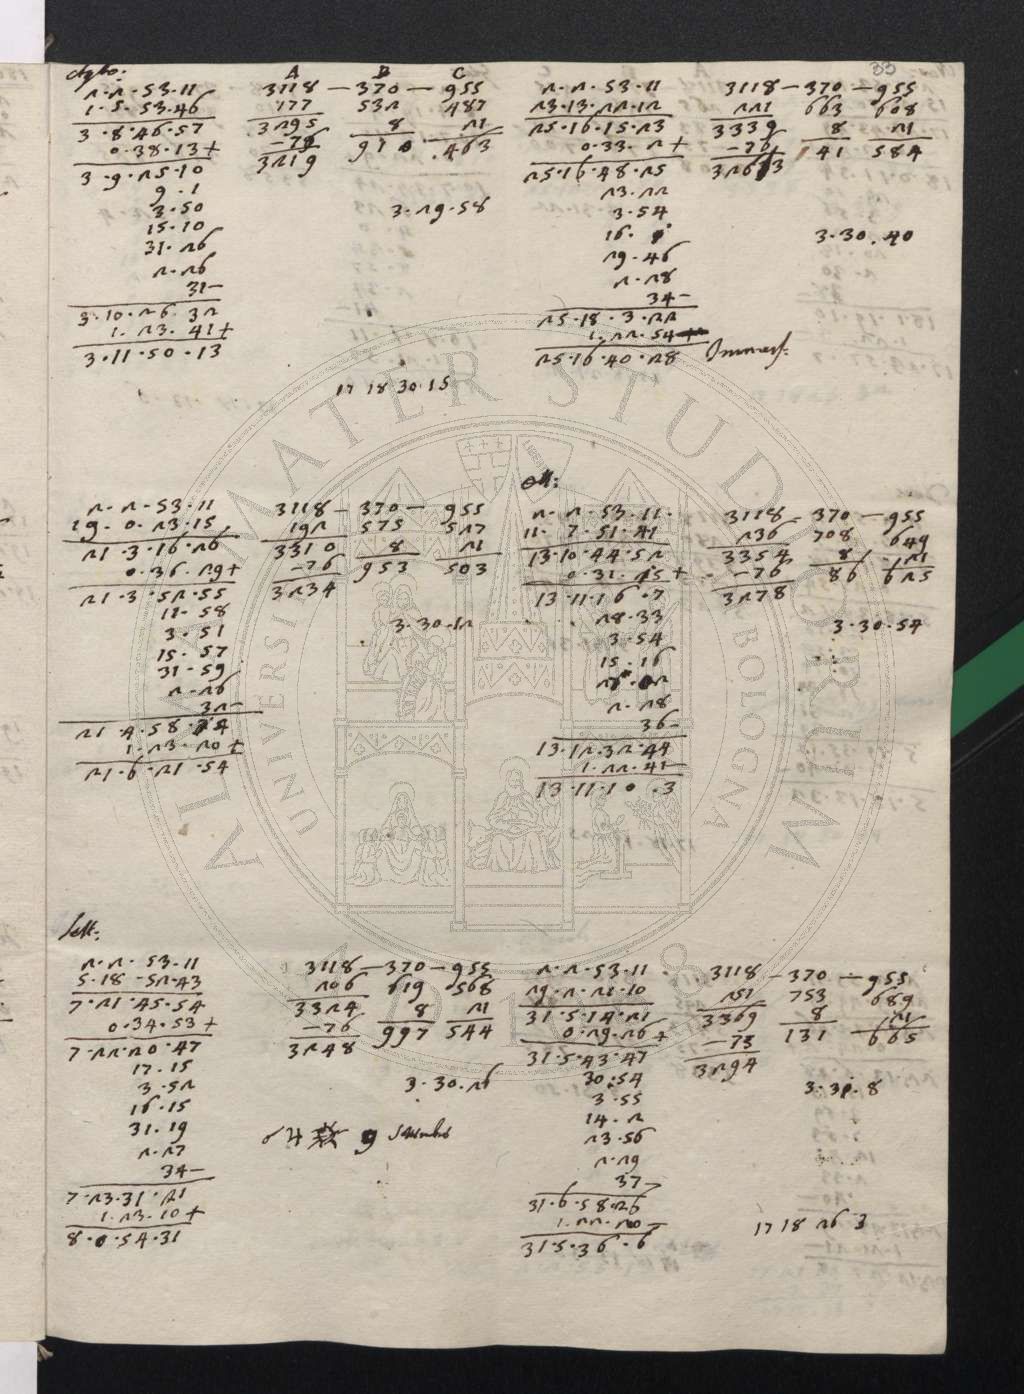 33
Agto:
2·2·53·11
1·5·53·46
3·8·46·57
0·38·13+
3·9·25·10
9·1
3·50
15·10
31·26
2·26
31—
3·10·26·32
1·23·41+
3·11·50·13
A B C
3118 — 370 — 955
177 532 487
3295 8 21
—76 910 463
3219
3·29·58
2·2·53·11
23·13·22·12
25·16·15·23
0·33·2+
25·16·48·25
23·22
3·54
16·
29·46
2·28
34—
25·18·3·22
1·22·54
25·16·40·28 Immers:
3118 — 370 — 955
221 663 608
3339 8 21
—76 41 584
3263
3·30·40
17 18 30·15
2·2·53·11
19·0·23·15
21·3·16·26
0·36·29+
21·3·52·55
11·58
3·51
15·57
31·59
2·26
32—
21·4·58·34
1·23·20+
21·6·21·54
3118 — 370 — 955
192 575 527
3310 8 21
—76 953 503
3234
3·30·12
Ott:
2·2·53·11·
11·7·51·41
13·10·44·52
0·31·15+
13·11·16·7
28·33
3·54
15·16
2·28
36—
13·12·32·44
1·22·41—
13·11·10·3
3118 370 — 955
236 708 649
3354 8 21
—76 86 625
3278
3·30·54
Sett:
2·2·53·11
5·18·52·43
7·21·45·54
0·34·53+
7·22·20·47
17·15
3·52
16·15
31·19
2·27
34—
7·23·31·21
1·23·10+
8·0·54·31
3118 — 370 — 955
206 619 568
3324 8 21
—76 997 544
3248
3·30·26
2·2·53·11·
29·2·21·10
31·5·14·21
0·29·26+
31·5·43·47
30·54
3·55
14·2
23·56
2·29
37—
31·6·58·26
1·22·20—
31·5·36·6
3118 — 370 — 955
251 753 689
3369 8 21
—75 131 665
3294
3·31·8
17 18 26 3
ALMA MATER STUDIORUM
UNIVERSITÀ DI BOLOGNA